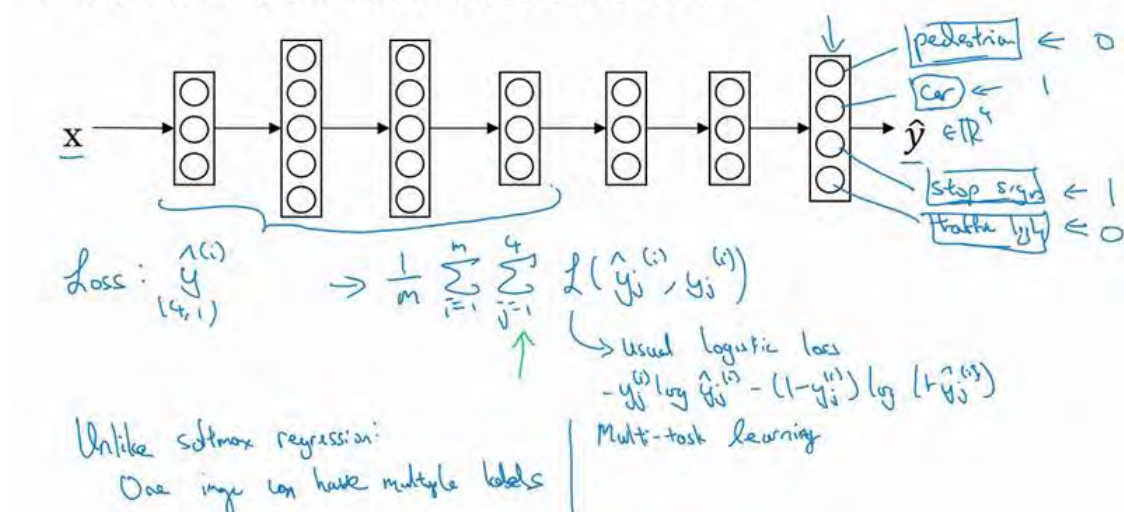 pedestrian ← 0
car ← 1
x
ŷ ∈ ℝ⁴
stop sign ← 1
traffic light ← 0
Loss: ŷ⁽ⁱ⁾ → 1/m Σᵢ₌₁ᵐ Σⱼ₌₁⁴ ℒ(ŷⱼ⁽ⁱ⁾, yⱼ⁽ⁱ⁾)
(4,1)
usual logistic loss
- yⱼ⁽ⁱ⁾ log ŷⱼ⁽ⁱ⁾ - (1-yⱼ⁽ⁱ⁾) log (1-ŷⱼ⁽ⁱ⁾)
Unlike softmax regression:
One image can have multiple labels
Multi-task learning